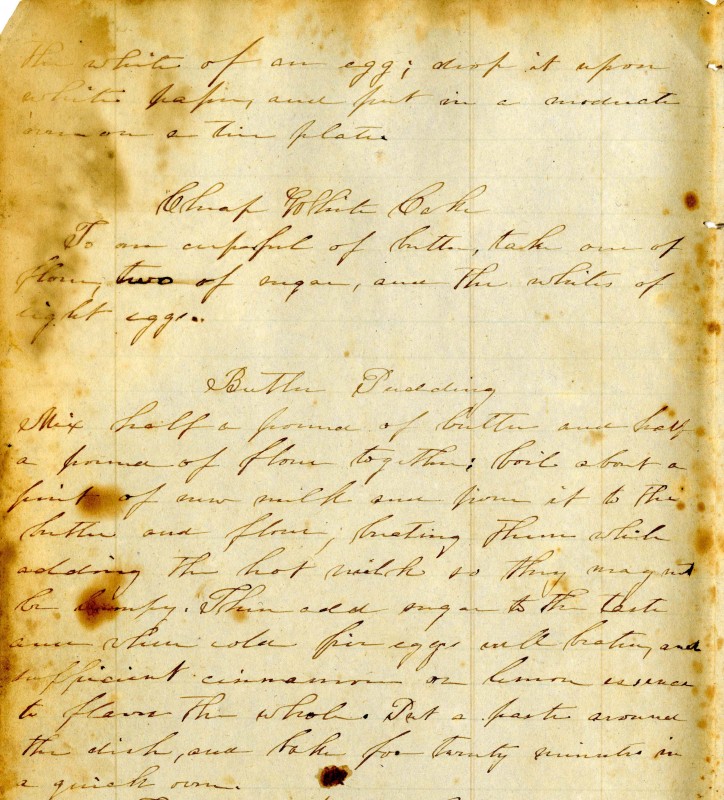 the white of an egg; drop it upon
white paper, and put in a moderate
oven on a tin plate.
Cheap White Cake
To one cupful of butter, take one of
flour, two of sugar, and the whites of
eight eggs.
Butter Pudding
Mix half a pound of butter and half
a pound of flour together: boil about a
pint of new milk and pour it to the
butter and flour, beating them while
adding the hot milk so they may not
be lumpy. Then add sugar to the taste
and when cold five eggs well beaten, and
sufficient cinnamon or lemon essence
to flavor the whole. Put a paste around
the dish, and bake for twenty minutes in
a quick oven.